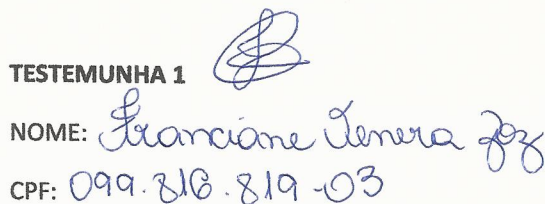 TESTEMUNHA 1
NOME: Franciane Venera Zoz
CPF: 099.816.819-03